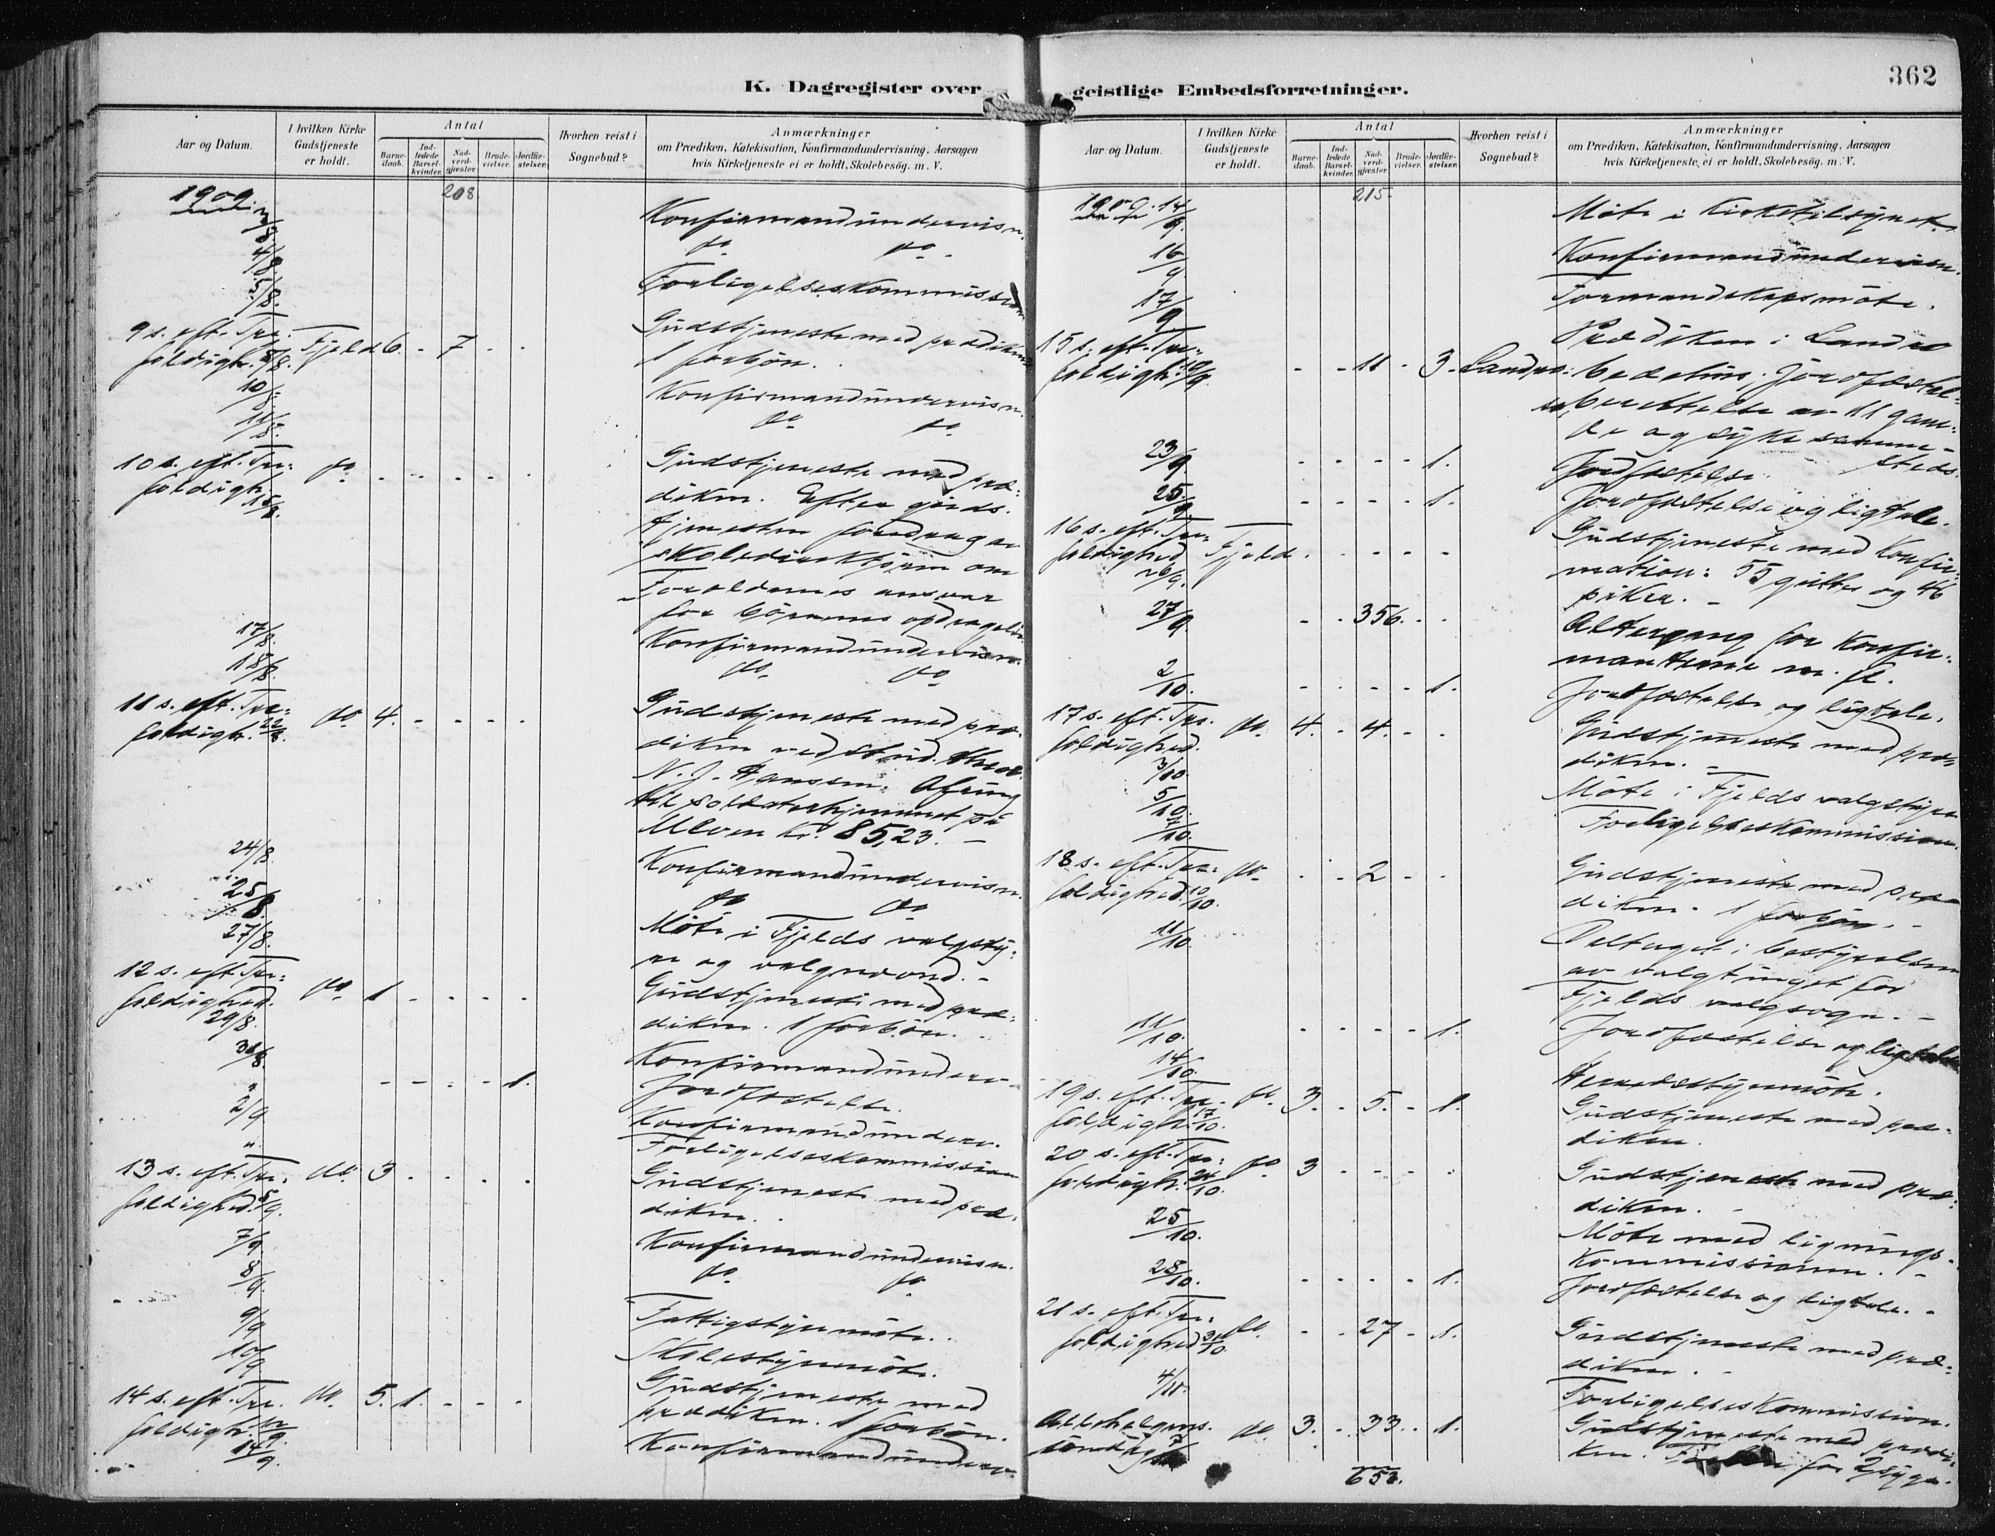 362
K. Dagregister over geistlige Embedsforretninger.
Aar og Datum.
I hvilken Kirke Gudstjeneste er holdt.
Antal
Barne-daab.
Ind-ledede Barsel-kvinder.
Nad-verd-gjæster
Brude-vielser.
Jordfæ-stelser.
Hvorhen reist i Sognebud?
Anmærkninger
om Prædiken, Katekisation, Konfirmandundervisning, Aarsagen
hvis Kirketjeneste ei er holdt, Skolebesøg. m. V.
1909. 208
3/8 Konfirmandundervisn.
4/8 do do.
5/8. Forligelseskommission
9 s. eft. Tre- Fjeld 6 - 7 - - Gudstjeneste med prædiken
foldigh. 8/8. 1 forbön.
10/8. Konfirmandundervisn.
11/8. do do.
10 s. eft. Tre- do - - - - - Gudstjeneste med præ-
foldigh. 15/8. diken. Efter guds-
tjenesten foredrag av
skoledirektören om
Forældrenes ansvar
for börnenes opdragelse
17/8. Konfirmandundervisn.
18/8. do. do
11 s. eft. Tre- do 4. - - - - Gudstjeneste med præ-
foldigh. 22/8. diken ved stud. theol.
N. J. Hanssen. Ofring
til soldaterhjemmet på
Ulven kr. 85,23. -
24/8. Konfirmandundervisn.
25/8. do do
27/8. Möte i Fjelds valgsty-
re og valgnevnd. -
12 s. eft. Tre- do. 1 - - - - Gudstjeneste med præ-
foldighed. 29/8. diken. 1 forbön.
31/8. Konfirmandunderv-
" - - - - 1. Jordfæstelse.
2/9 Konfirmandunderv.
" Forligelseskommission
13 s. eft. Tre- do. 3 - - - - Gudstjeneste med præ-
foldighed. 5/9. diken.
7/9 Konfirmandundervisn.
8/9. do. do.
9/9 Fattigstyremöte.
10/9 Skolestyremöte.
14 s. eft. Tre- do. 5. 1. - - - Gudstjeneste med
foldigh. 12/9. prædiken. 1 forbön.
14/9. Konfirmandunderv.
Aar og Datum.
I hvilken Kirke Gudstjeneste er holdt.
Antal
Barne-daab.
Ind-ledede Barsel-kvinder.
Nad-verd-gjæster
Brude-vielser.
Jordfæ-stelser.
Hvorhen reist i Sognebud?
Anmærkninger
om Prædiken, Katekisation, Konfirmandundervisning, Aarsagen
hvis Kirketjeneste ei er holdt, Skolebesøg. m. V.
1909. 14/9. 215. Möte i Kirketilsynet.
16/9 Konfirmandundervisn.
17/9 Formandskapsmöte.
15 s. eft. Tre- Prædiken i Landro
foldigh. 19/9. - - 11 - 3. Landro: bedehus; Jordfæstel-
se, berettelse av 11 gam-
le og syke samme-
steds.
23/9 - - - - 1. Jordfæstelse
25/9 - - - - 1. Jordfæstelse og ligtale.
16 s. eft. Tre- Gudstjeneste med Konfir-
foldighed 26/9. Fjeld. - - - - - mation: 55 gutter og 46
piker. -
27/9. - - 356. - - Altergang for Konfir-
manterne m. fl.
2/10. - - - - 1. Jordfæstelse og ligtale.
17 s. eft. Tre- do. 4. - 4. - - Gudstjeneste med præ-
foldighed. 3/10. diken. -
5/10. Möte i Fjelds valgstyre
7/10. Forligelseskommission.
18 s. eft. Tre- do. - - 2 - - Gudstjeneste med præ-
foldighed. 10/10. diken. 1 forbön. -
11/10 Deltaget i bestyrelsen
av valgtinget for
Fjelds valgsogn. -
11/10. - - - - 1. Jordfæstelse og ligtale
14/10. Herredsstyremöte.
19 s. eft. Tre- do. 3. - 5. - 1. Gudstjeneste med præ-
foldigh. 17/10. diken.
20 s. eft. Tre- do 3 - - - - Gudstjeneste med præ-
foldigh. 24/10. diken. -
25/10. Möte med lignings-
kommissionen. -
28/10. - - - - 1. Jordfæstelse og ligtale. -
21 s. eft. Tre- do. - - 27 - 1. Gudstjeneste med præ-
foldighed 31/10. diken. -
4/11. Forligelseskommission.
Allehelgens- do. 3. - 33 - 1. Gudstjeneste med prædi-
söndag 7/11 ken. for 2 syge.
653.